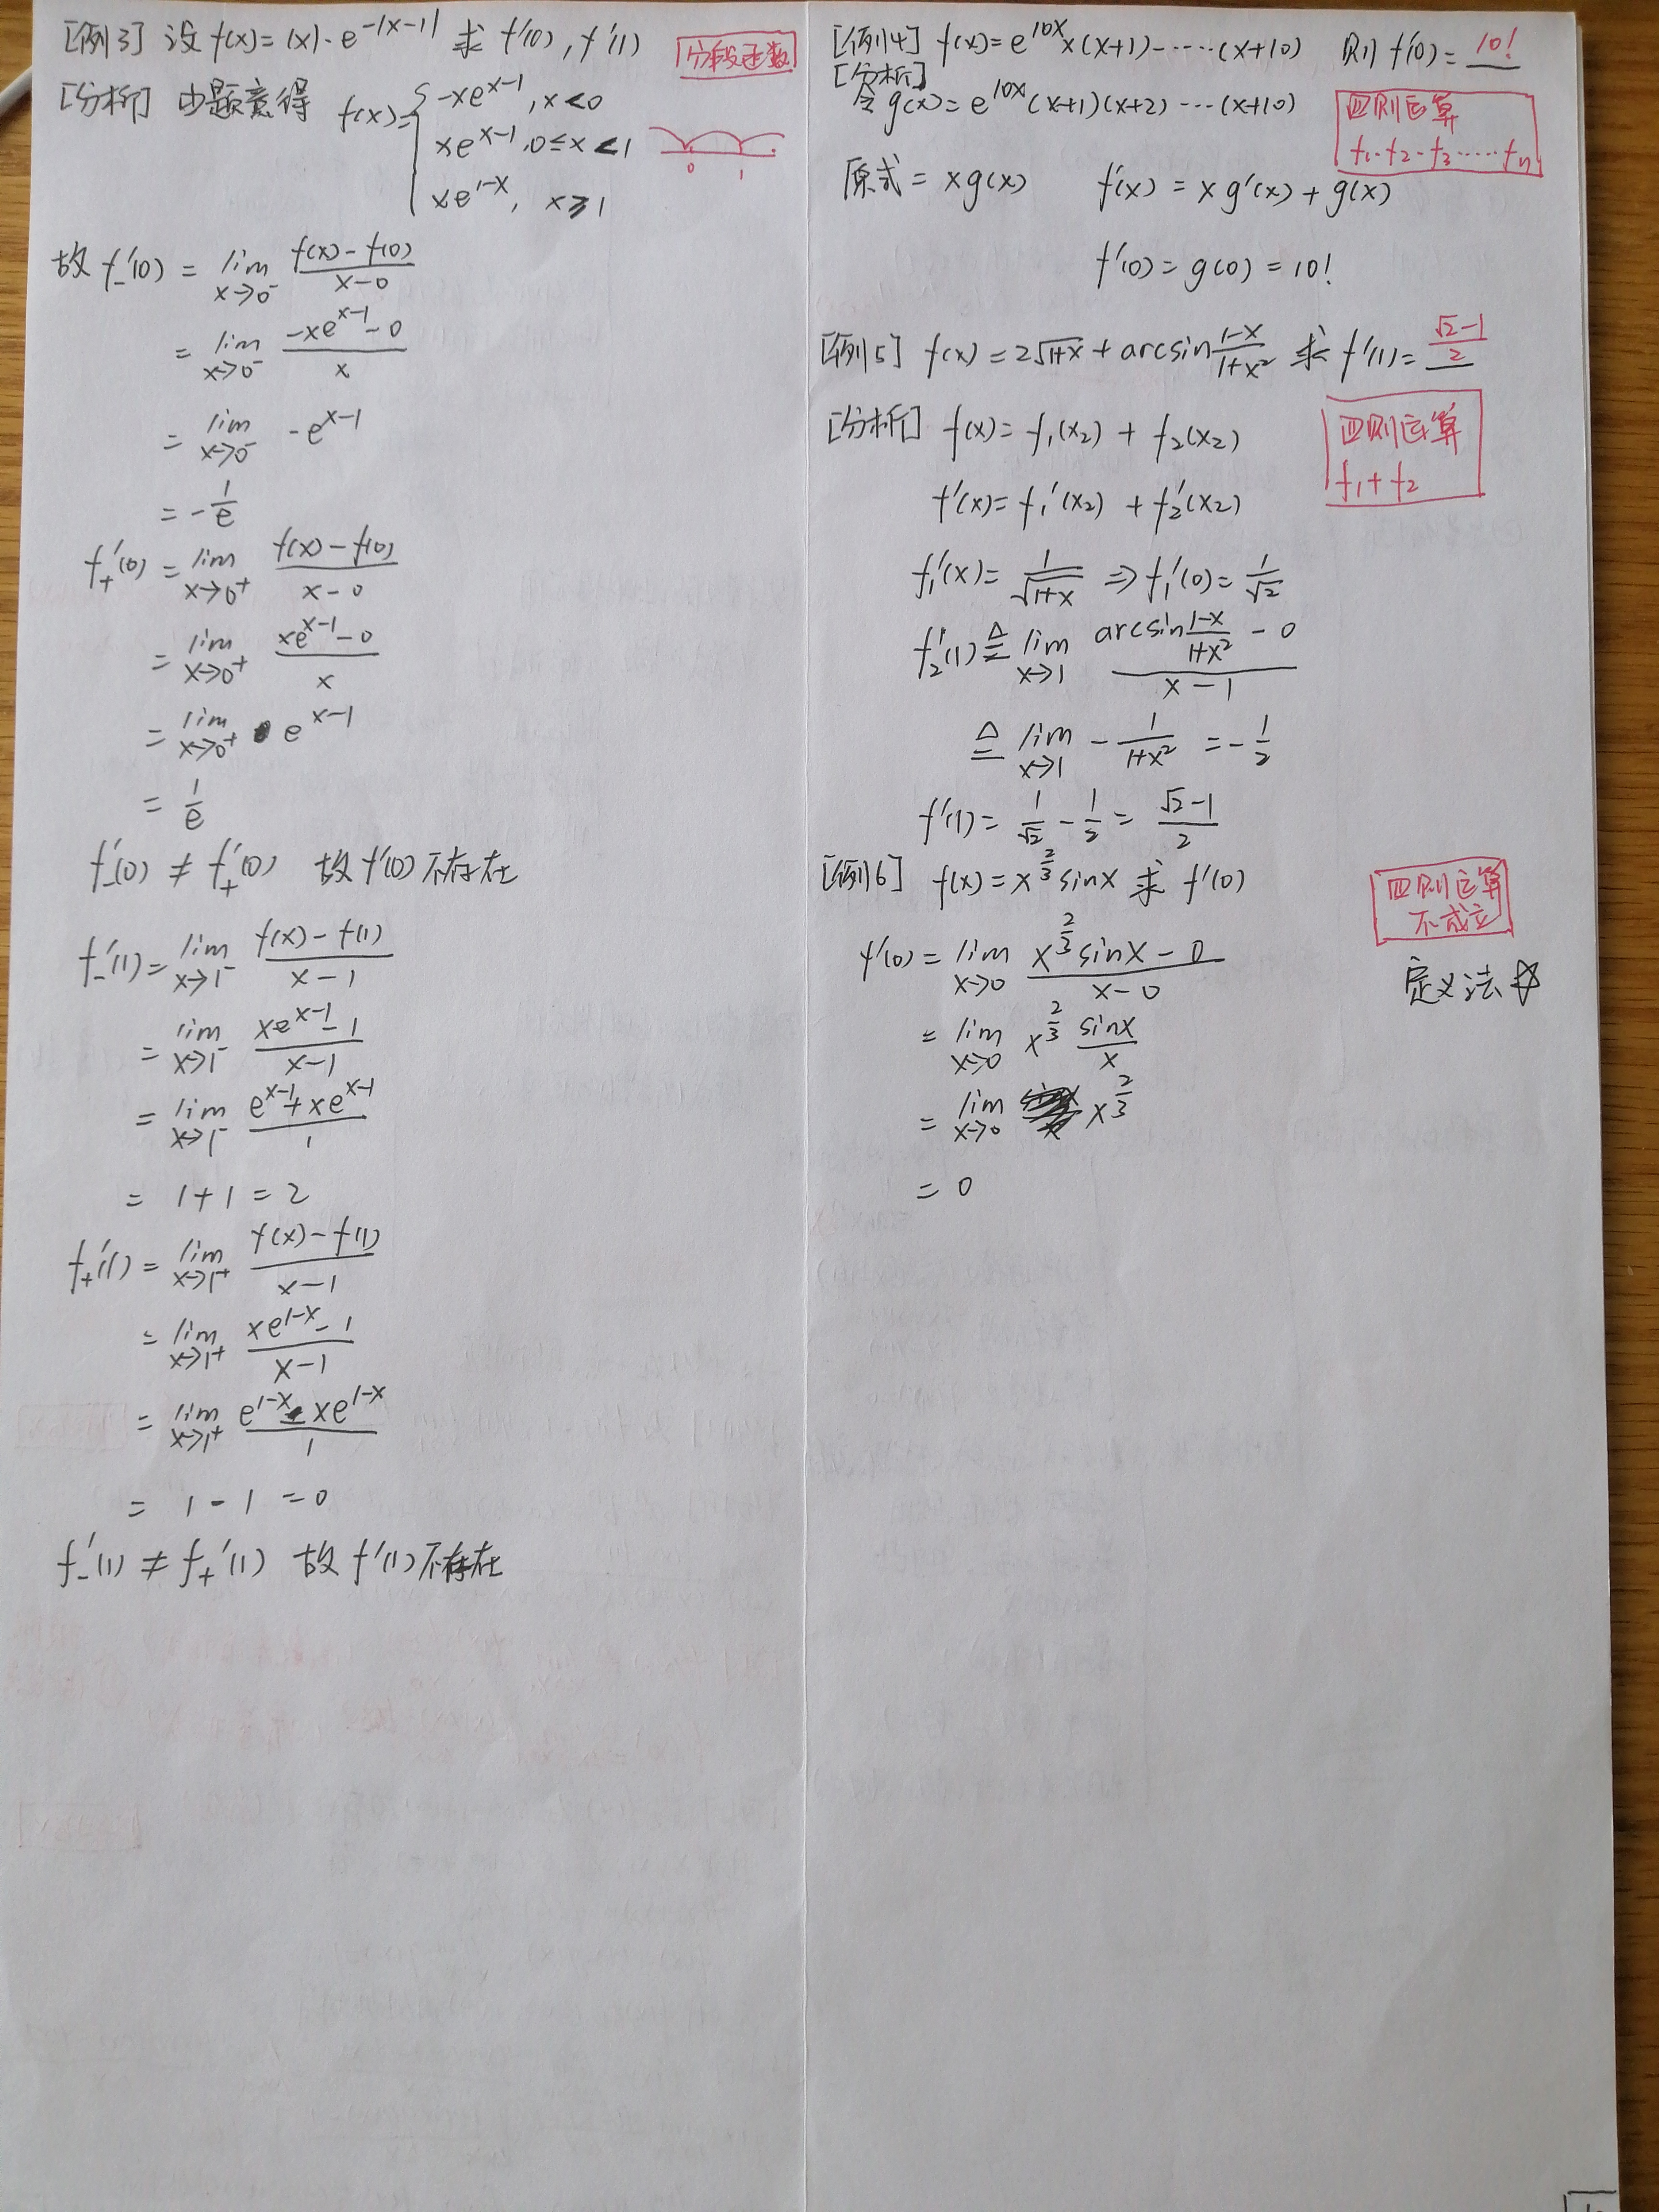 [例3] 设 f(x)=|x|·e^{-|x-1|} 求 f'(0), f'(1)
分段函数
[分析] 由题意得 f(x)={ -xe^{x-1}, x<0
xe^{x-1}, 0≤x<1
xe^{1-x}, x≥1
0 1
故 f_-'(0) = lim_{x→0^-} (f(x)-f(0))/(x-0)
= lim_{x→0^-} (-xe^{x-1}-0)/x
= lim_{x→0^-} -e^{x-1}
= -1/e
f_+'(0) = lim_{x→0^+} (f(x)-f(0))/(x-0)
= lim_{x→0^+} (xe^{x-1}-0)/x
= lim_{x→0^+} e^{x-1}
= 1/e
f_-'(0) ≠ f_+'(0) 故 f'(0) 不存在
f_-'(1) = lim_{x→1^-} (f(x)-f(1))/(x-1)
= lim_{x→1^-} (xe^{x-1}-1)/(x-1)
= lim_{x→1^-} (e^{x-1}+xe^{x-1})/1
= 1+1 = 2
f_+'(1) = lim_{x→1^+} (f(x)-f(1))/(x-1)
= lim_{x→1^+} (xe^{1-x}-1)/(x-1)
= lim_{x→1^+} (e^{1-x}-xe^{1-x})/1
= 1-1 = 0
f_-'(1) ≠ f_+'(1) 故 f'(1) 不存在
[例4] f(x)=e^{10x}x(x+1)-……(x+10) 则 f'(0)= 10!
[分析]
令 g(x)=e^{10x}(x+1)(x+2)…(x+10)
四则运算
f₁·f₂·f₃……fₙ
原式 = xg(x) f'(x) = xg'(x)+g(x)
f'(0) = g(0) = 10!
[例5] f(x)=2√(1+x)+arcsin((1-x)/(1+x²)) 求 f'(1)= (√2-1)/2
[分析] f(x)=f₁(x₂) + f₂(x₂)
四则运算
f₁+f₂
f'(x)=f₁'(x₂) + f₂'(x₂)
f₁'(x) = 1/√(1+x) ⇒ f₁'(0) = 1/√2
f₂'(1) ≜ lim_{x→1} (arcsin((1-x)/(1+x²)) - 0)/(x-1)
≜ lim_{x→1} -1/(1+x²) = -1/2
f'(1) = 1/√2 - 1/2 = (√2-1)/2
[例6] f(x)=x^{2/3}sinx 求 f'(0)
四则运算
不成立
f'(0) = lim_{x→0} (x^{2/3}sinx-0)/(x-0)
定义法☆
= lim_{x→0} x^{2/3} sinx/x
= lim_{x→0} x^{2/3}
= 0